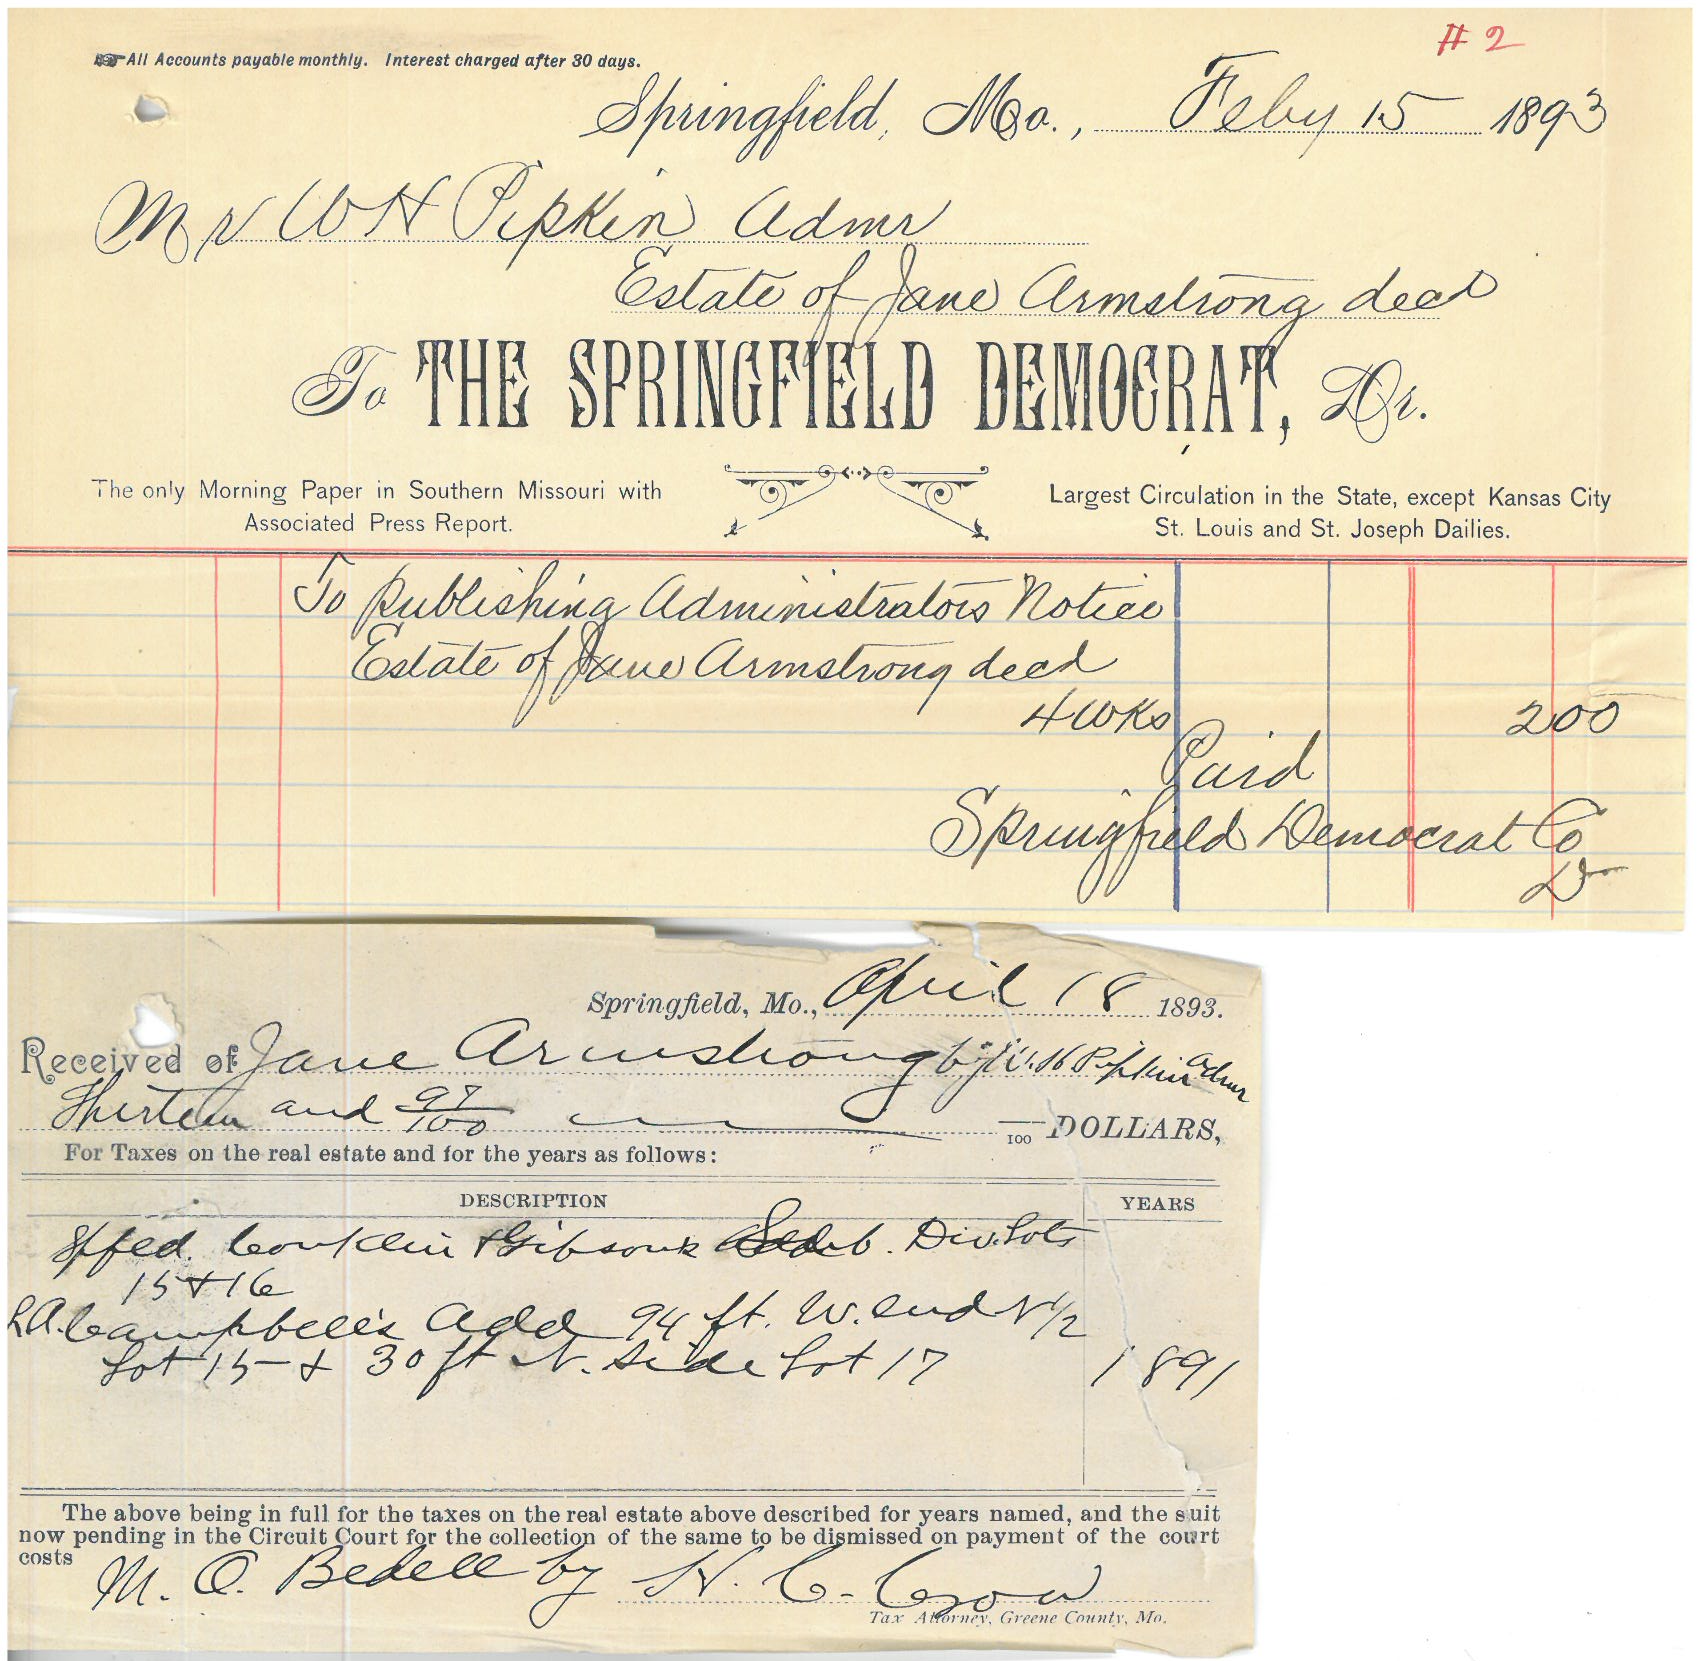 # 2
All Accounts payable monthly. Interest charged after 30 days.
Springfield, Mo., Feby 15 1893
Mr W H Pipkin Admr
Estate of Jane Armstrong decd
To THE SPRINGFIELD DEMOCRAT, Dr.
The only Morning Paper in Southern Missouri with
Associated Press Report.
Largest Circulation in the State, except Kansas City
St. Louis and St. Joseph Dailies.
To publishing Administrators Notice
Estate of Jane Armstrong decd
4 Wks 2 00
Paid
Springfield Democrat Co
Springfield, Mo., April 18 1893.
Received of Jane Armstrong by W. H Pipkin Admr
Thirteen and 97/100 /100 DOLLARS,
For Taxes on the real estate and for the years as follows:
DESCRIPTION YEARS
Spfed. Conklin & Gibsons Sub. Div. Lots
15 & 16
L.A. Campbell's Add 94 ft. W. End N 1/2
Lot 15 & 30 ft N. Side Lot 17 1891
The above being in full for the taxes on the real estate above described for years named, and the suit
now pending in the Circuit Court for the collection of the same to be dismissed on payment of the court
costs
M. O. Bedell by H. C. Crow
Tax Attorney, Greene County, Mo.